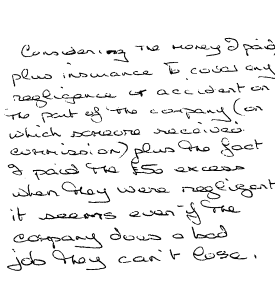 Considering the money I paid
plus insurance to cover any
negligence or accident on
the part of the company (on
which someone received
commission) plus the fact
I paid the £50 excess
when they were negligent
it seems even if the
company does a bad
job they can't lose.